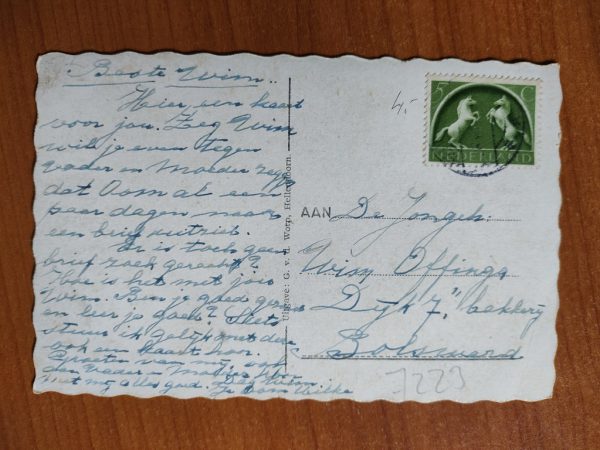 Beste Wim..
Hier een kaart
voor jou. Zeg Wim
wil je even tegen
vader en Moeder zegg
dat Oom al een
paar dagen naar
een brief uitziet.
Er is toch geen
brief zoek geraakt?
Hoe is het met jou
Wim. Ben je goed gezond
en leer je goed?
stuur ik gelijk met deze
ook een kaart hoor.
Groeten van mij, ook
aan Vader en Moeder hoor
met mij alles goed. Dag Wim
Je Oom
Uitgave: G. v. d. Worp, Hellendoorn.
4.-
5 C
NEDERLAND
AAN De Jongeh:
Wim Offinga
Dijk 7, "bakkerij
Bolsward
7223